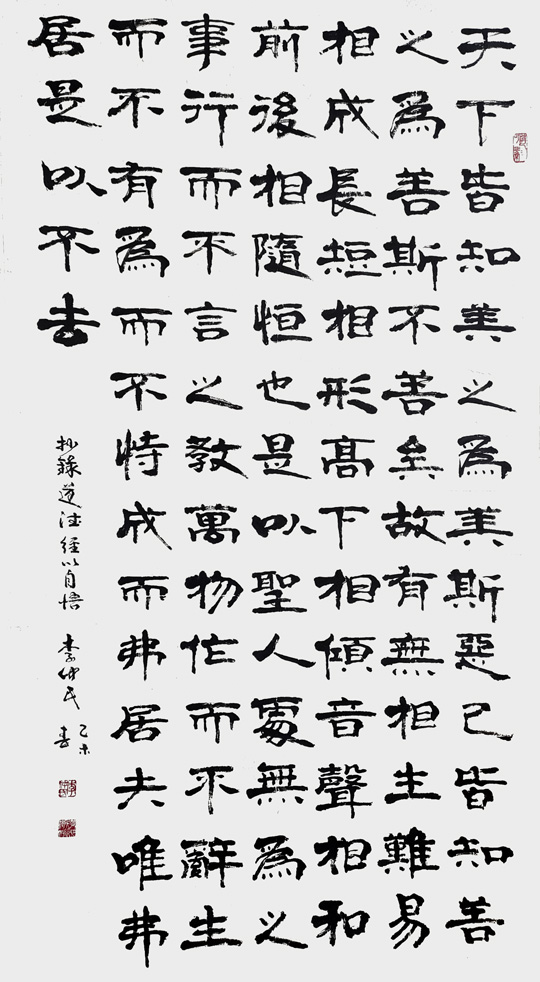 天下皆知美之為美斯惡已皆知善
之為善斯不善矣故有無相生難易
相成長短相形高下相傾音聲相和
前後相隨恒也是以聖人處無為之
事行而不言之教萬物作而不辭生
而不有為而不恃成而弗居夫唯弗
居是以不去
抄錄道德經以自悟 李仲民
乙未
書